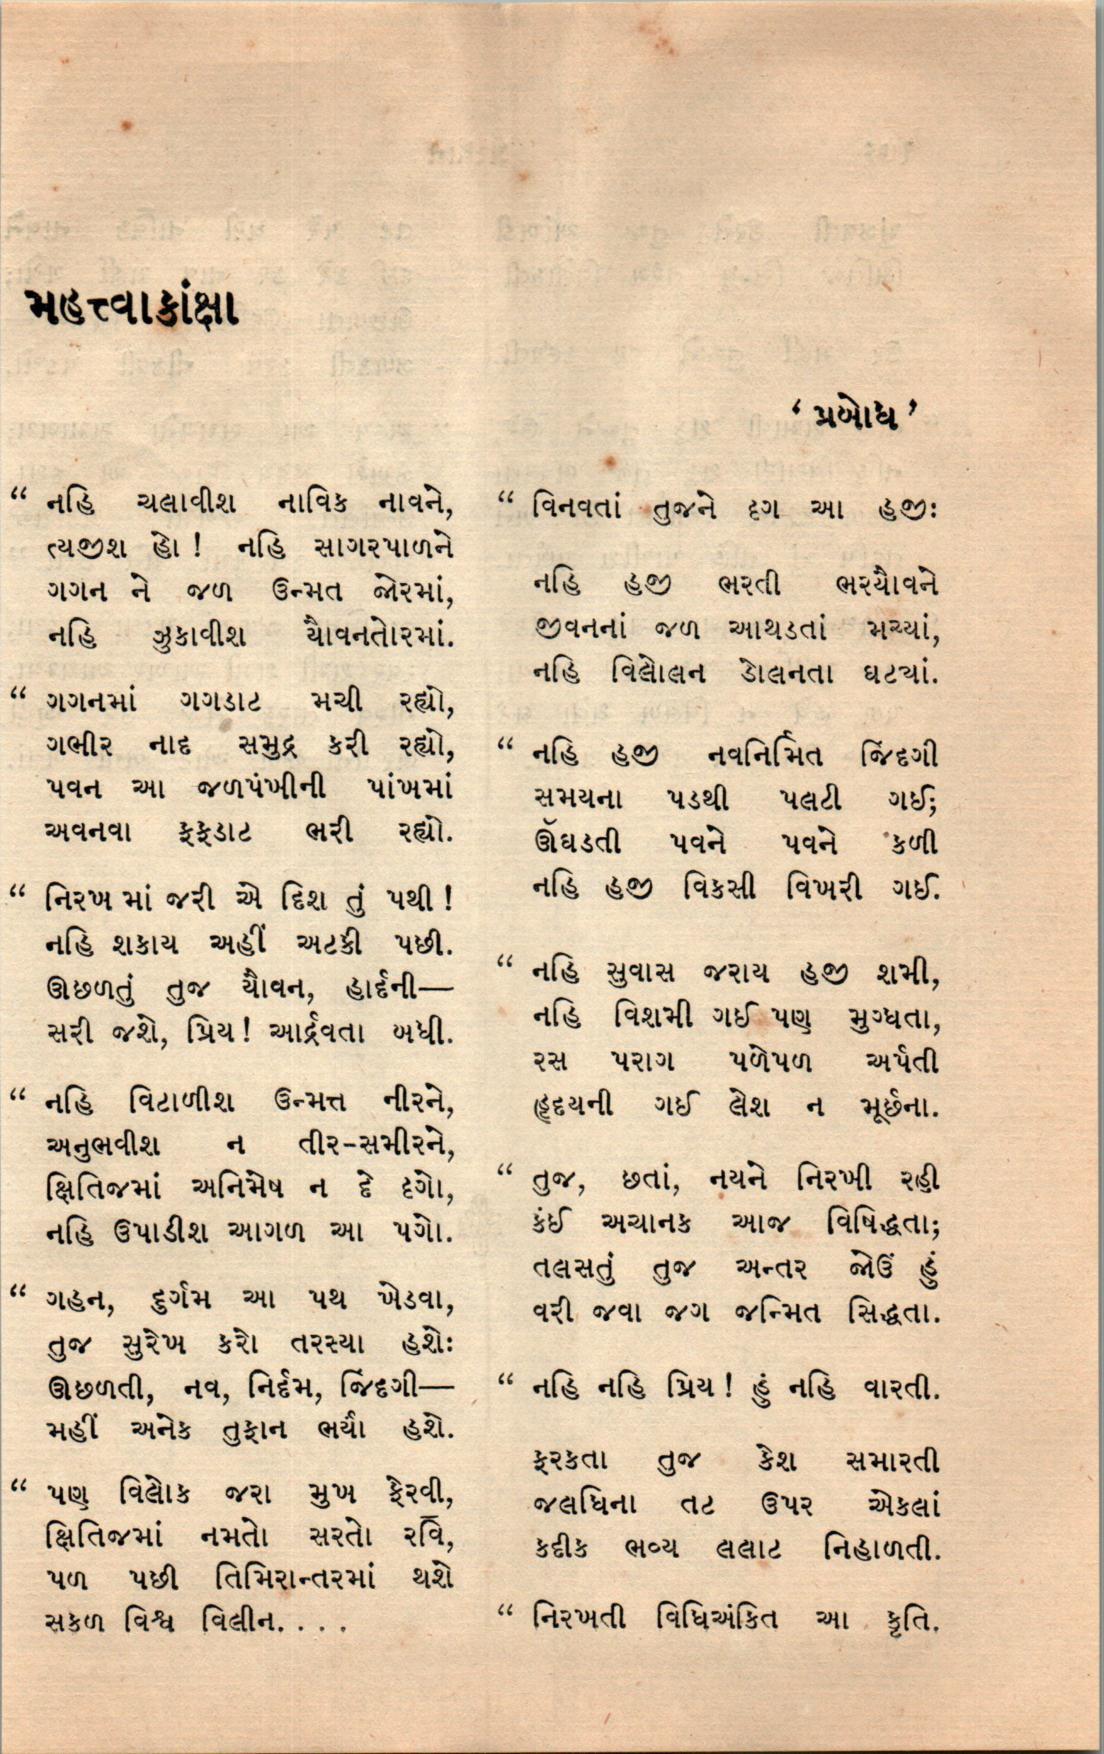 મહત્ત્વાકાંક્ષા
‘ પ્રબોધ ’
“ નહિ ચલાવીશ નાવિક નાવને,
ત્યજીશ હો ! નહિ સાગરપાળને
ગગન ને જળ ઉન્મત જોરમાં,
નહિ ઝુકાવીશ યૌવનતોરમાં.
“ ગગનમાં ગગડાટ મચી રહ્યો,
ગભીર નાદ સમુદ્ર કરી રહ્યો,
પવન આ જળપંખીની પાંખમાં
અવનવા ફફડાટ ભરી રહ્યો.
“ નિરખ માં જરી એ દિશ તું પથી !
નહિ શકાય અહીં અટકી પછી.
ઊછળતું તુજ યૌવન, હાર્દની—
સરી જશે, પ્રિય ! આર્દ્રવતા બધી.
“ નહિ વિટાળીશ ઉન્મત્ત નીરને,
અનુભવીશ ન તીર-સમીરને,
ક્ષિતિજમાં અનિમેષ ન દે દૃગો,
નહિ ઉપાડીશ આગળ આ પગો.
“ ગહન, દુર્ગમ આ પથ ખેડવા,
તુજ સુરેખ કરો તરસ્યા હશેઃ
ઊછળતી, નવ, નિર્દમ, જિંદગી—
મહીં અનેક તુફાન ભર્યાં હશે.
“ પણ વિલોક જરા મુખ ફેરવી,
ક્ષિતિજમાં નમતો સરતો રવિ,
પળ પછી તિમિરાન્તરમાં થશે
સકળ વિશ્વ વિલીન. . . .
“ વિનવતાં તુજને દૃગ આ હજીઃ
નહિ હજી ભરતી ભરયૌવને
જીવનનાં જળ આથડતાં મચ્યાં,
નહિ વિલોલન ડોલનતા ઘટ્યાં.
“ નહિ હજી નવનિર્મિત જિંદગી
સમયના પડથી પલટી ગઈ;
ઊઘડતી પવને પવને કળી
નહિ હજી વિકસી વિખરી ગઈ.
“ નહિ સુવાસ જરાય હજી શમી,
નહિ વિશમી ગઈ પણ મુગ્ધતા,
રસ પરાગ પળેપળ અર્પતી
હૃદયની ગઈ લેશ ન મૂર્છના.
“ તુજ, છતાં, નયને નિરખી રહી
કંઈ અચાનક આજ વિષિદ્ધતા;
તલસતું તુજ અન્તર જોઉં હું
વરી જવા જગ જન્મિત સિદ્ધતા.
“ નહિ નહિ પ્રિય ! હું નહિ વારતી.
ફરકતા તુજ કેશ સમારતી
જલધિના તટ ઉપર એકલાં
કદીક ભવ્ય લલાટ નિહાળતી.
“ નિરખતી વિધિઅંકિત આ કૃતિ.